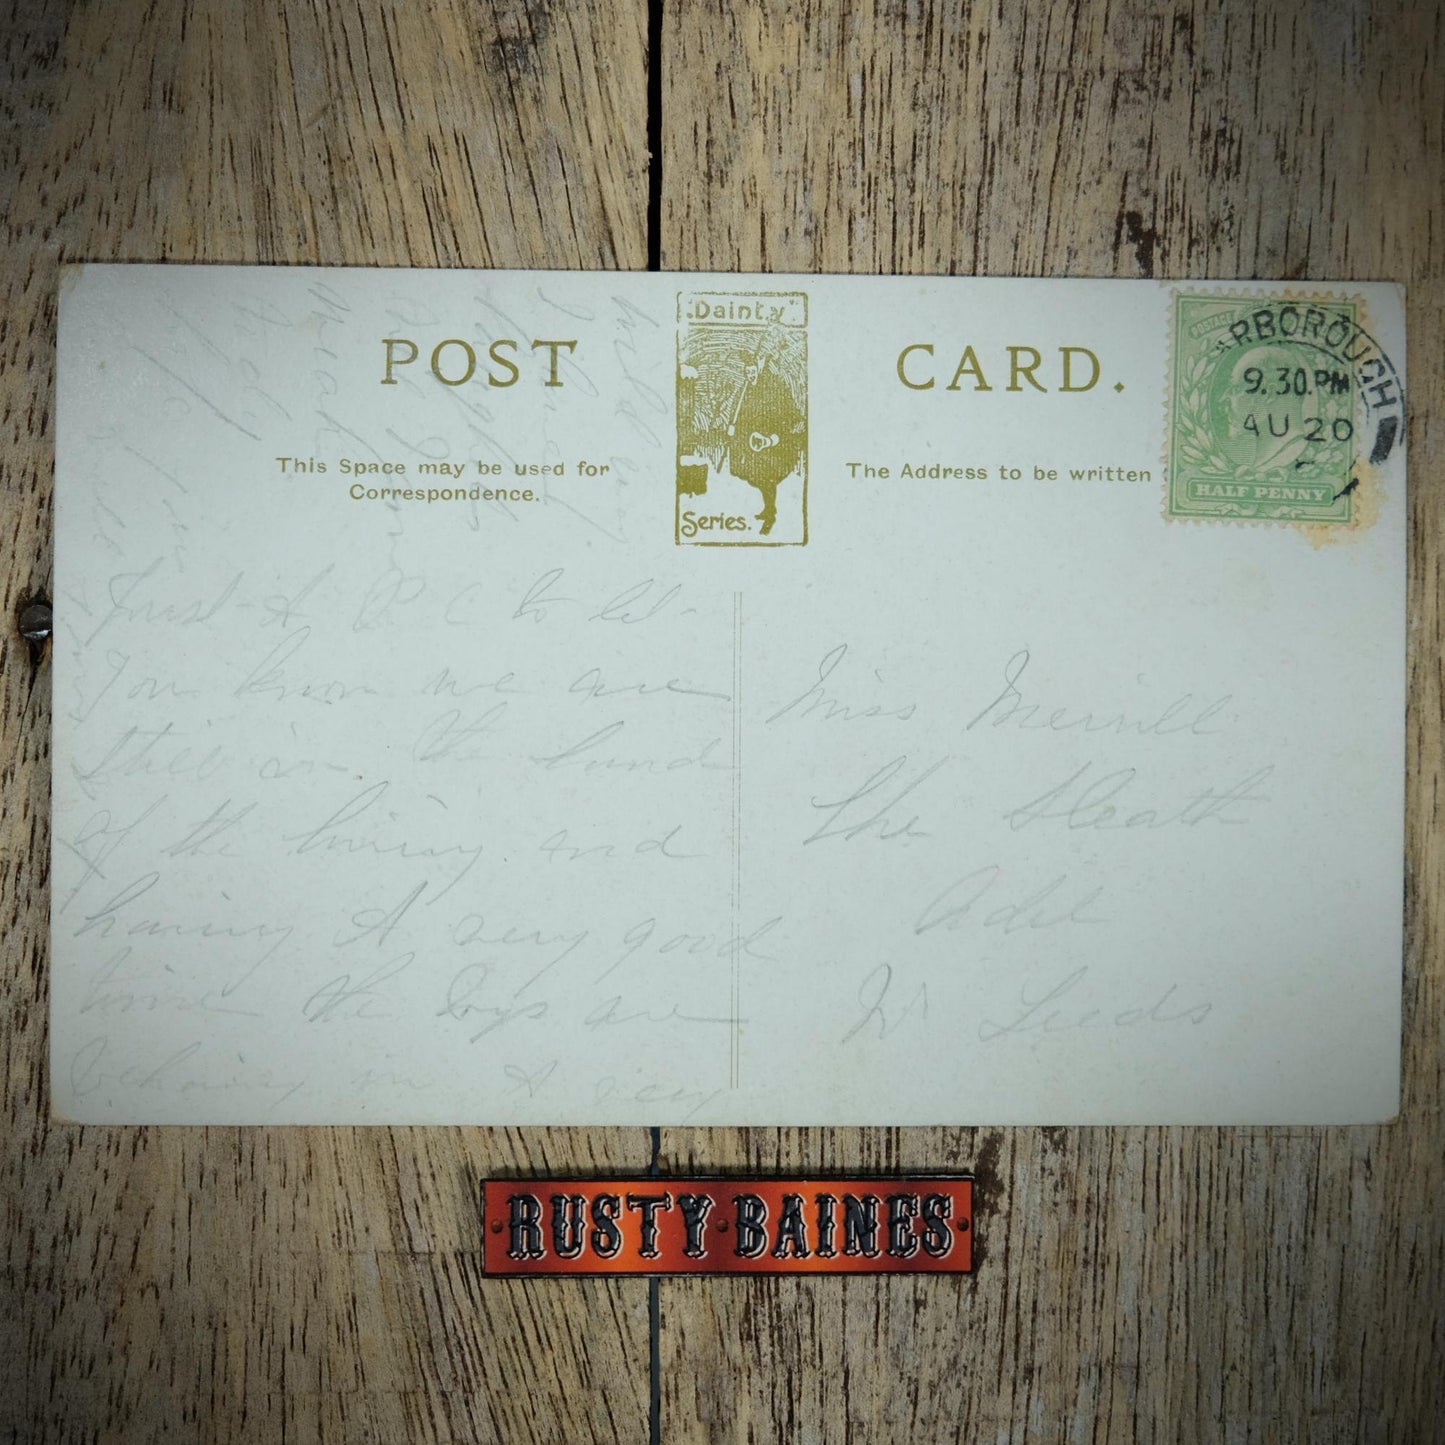 POST CARD.
"Dainty"
Series.
This Space may be used for
Correspondence.
The Address to be written
ARBOROUGH
9.30.PM
AU 20
HALF PENNY
Just A P C to let
you know we are
still in the land
of the living and
having A very good
time the boys are
behaving in A very
mild way
Miss Merrill
The Heath
Adel
Nr Leeds
RUSTY BAINES